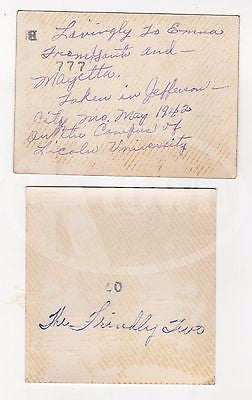 B
Lovingly to Emma
From Faith and —
777
Mayetta.
Taken in Jefferson —
City Mo. May 1942
on the Campus of
Licoln University
20
The Frindly Two